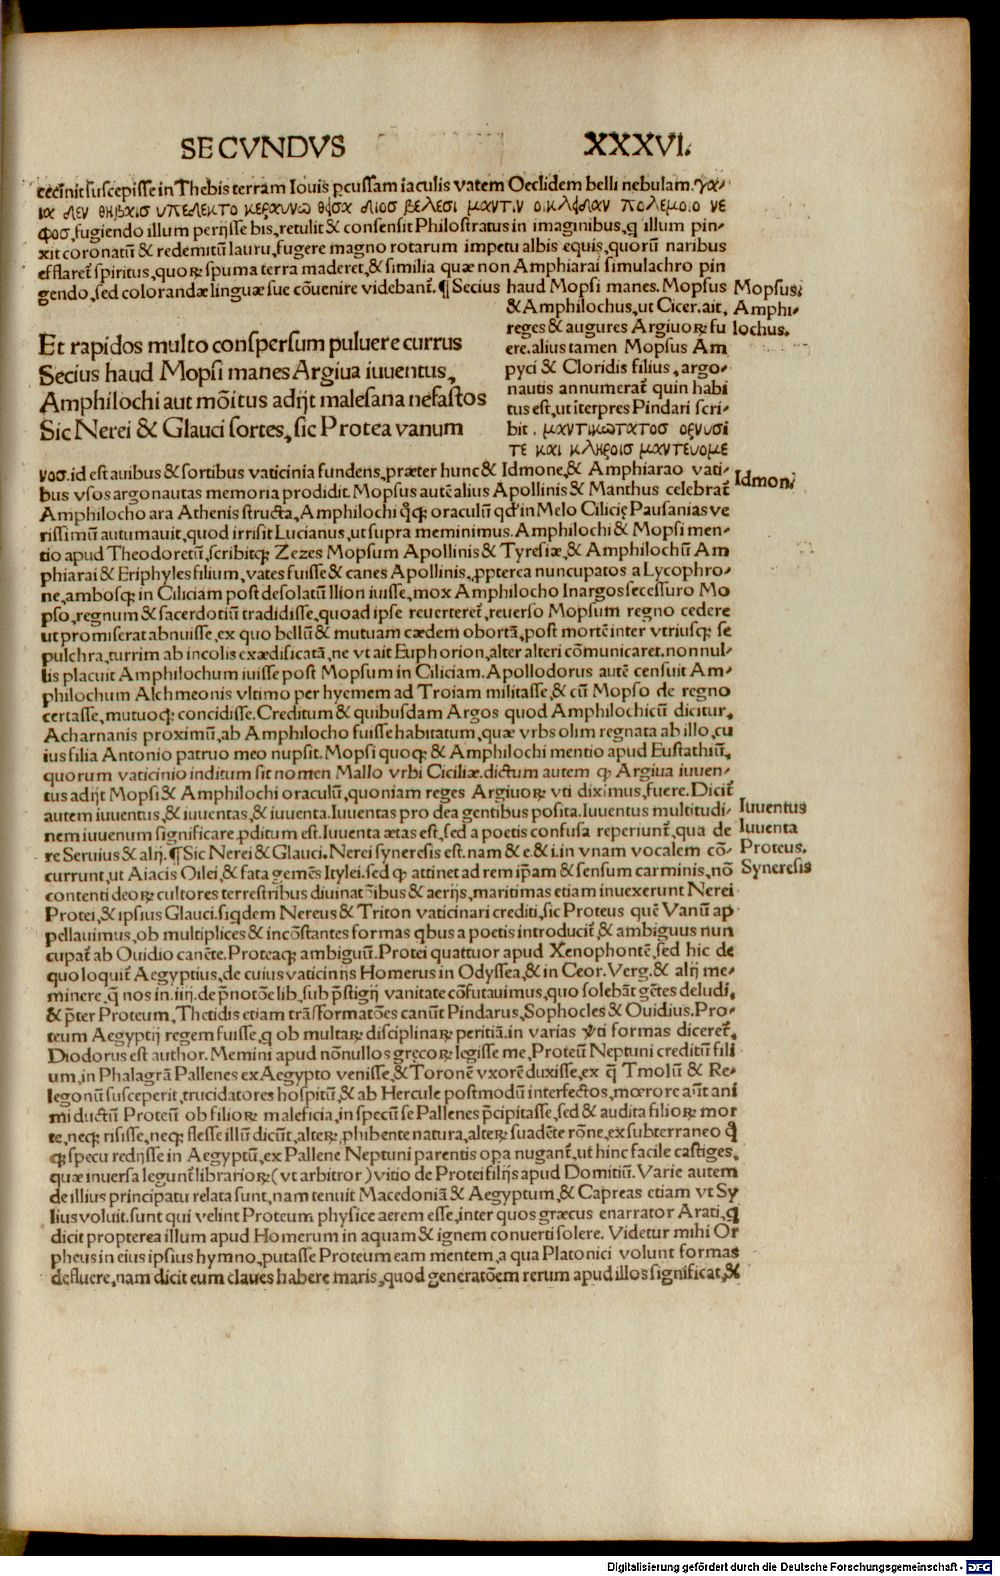 SECVNDVS XXXVI.
cecinit suscepisse in Thebis terram Iouis ꝑcussam iaculis vatem Oeclidem belli nebulam. γα⸗
ια δεν θηβαισ υπεδεκτο κεραυνω θῳσα διοσ βελεσι μαντιν οικλῳδαν πολεμοιο νε
φοσ, fugiendo illum perijsse bis, retulit & consensit Philostratus in imaginibus, ꝙ illum pin⸗
xit coronatū & redemitū lauru, fugere magno rotarum impetu albis equis, quorū naribus
efflaret̃ spiritus, quoꝝ spuma terra maderet, & similia quæ non Amphiarai simulachro pin
gendo, sed colorandæ linguæ suę cōuenire videbant̃. ¶ Secius haud Mopsi manes. Mopsus
& Amphilochus, ut Cicer. ait,
reges & augures Argiuoꝝ fu
ere. alius tamen Mopsus Am
pyci & Cloridis filius, argo⸗
nautis annumerat̃ quin habi
tus est, ut īterpres Pindari scri⸗
bit. μαντικωτατοσ ορνυσι
τε και κληροισ μαντευομε
Mopsus;
Amphi⸗
lochus.
Et rapidos multo conspersum puluere currus
Secius haud Mopsi manes Argiua iuuentus,
Amphilochi aut mōitus adijt malesana nefastos
Sic Nerei & Glauci sortes, sic Protea vanum
νοσ. id est auibus & sortibus vaticinia fundens, præter hunc & Idmone, & Amphiarao vati⸗
bus vsos argonautas memoria prodidit. Mopsus autē alius Apollinis & Manthus celebrat̃
Idmon;
Amphilocho ara Athenis structa, Amphilochi q̊ꝗ oraculū qď in Melo Cilicię Pausanias ve
rissimū autumauit, quod irrisit Lucianus, ut supra meminimus. Amphilochi & Mopsi men⸗
tio apud Theodoretū, scribitꝗ Zezes Mopsum Apollinis & Tyresiæ, & Amphilochū Am
phiarai & Eriphyles filium, vates fuisse & canes Apollinis, ꝓpterea nuncupatos a Lycophro⸗
ne, ambosꝗ in Ciliciam post desolatū Ilion iuisse, mox Amphilocho Inargos secessuro Mo
pso, regnum & sacerdotiū tradidisse, quoad ipse reuerteret̃, reuerso Mopsum regno cedere
ut promiserat abnuisse, ex quo bellū & mutuam cædem obortā, post mortē inter vtriusꝗ se
pulchra, turrim ab incolis exædificatā, ne vt ait Euphorion, alter alteri cōmunicaret. nonnul⸗
lis placuit Amphilochum iuisse post Mopsum in Ciliciam. Apollodorus autē censuit Am⸗
philochum Alchmeonis vltimo per hyemem ad Troiam militasse, & cū Mopso de regno
certasse, mutuoꝗ concidisse. Creditum & quibusdam Argos quod Amphilochicū dicitur,
Acharnanis proximū, ab Amphilocho fuisse habitatum, quæ vrbs olim regnata ab illo, cu
ius filia Antonio patruo meo nupsit. Mopsi quoꝗ & Amphilochi mentio apud Eustathiū,
quorum vaticinio inditum sit nomen Mallo vrbi Ciciliæ. dictum autem ꝙ Argiua iuuen⸗
tus adijt Mopsi & Amphilochi oraculū, quoniam reges Argiuoꝝ vti diximus, fuere. Dicit̃
autem iuuentus, & iuuentas, & iuuenta. Iuuentas pro dea gentibus posita. Iuuentus multitudi⸗
nem iuuenum significare ꝓditum est. Iuuenta ætas est, sed a poetis confusa reperiunt̃, qua de
re Seruius & alij. ¶ Sic Nerei & Glauci. Nerei syneresis est. nam & e. & i. in vnam vocalem cō⸗
currunt, ut Aiacis Oilei, & fata gemēs Itylei. sed ꝙ attinet ad rem ip̄am & sensum carminis, nō
Iuuentus
Iuuenta
Proteus.
Syneresis
contenti deoꝝ cultores terrestribus diuinatōibus & aerijs, maritimas etiam inuexerunt Nerei
Protei, & ipsius Glauci. siqdem Nereus & Triton vaticinari crediti, sic Proteus quē Vanū ap
pellauimus, ob multiplices & incōstantes formas qbus a poetis introducit̃, & ambiguus nun
cupat̃ ab Ouidio canēte. Proteaꝗ ambiguū. Protei quattuor apud Xenophontē, sed hic de
quo loquit̃ Aegyptius, de cuius vaticinijs Homerus in Odyssea, & in Geor. Verg. & alij me⸗
minere, q̄ nos in .iiij. de p̄notōe lib. sub p̄stigij vanitate cōfutauimus, quo solebāt gētes deludi,
& p̄ter Proteum, Thetidis etiam trāsformatōes canūt Pindarus, Sophocles & Ouidius. Pro⸗
teum Aegyptij regem fuisse, ꝗ ob multaꝝ disciplinaꝝ peritiā. in varias vti formas diceret̃,
Diodorus est author. Memini apud nōnullos gręcoꝝ legisse me, Proteū Neptuni creditū fili
um, in Phalagrā Pallenes ex Aegypto venisse, & Toronē vxorē duxisse, ex q̄ Tmolū & Re⸗
legonū susceperit, trucidatores hospitū, & ab Hercule postmodū interfectos, mœrore aūt ani
mi ductū Proteū ob filioꝝ maleficia, in specū se Pallenes p̄cipitasse, sed & audita filioꝝ mor
te, neꝗ risisse, neꝗ flesse illū dicūt, alteꝝ ꝓhibente natura, alteꝝ suadēte rōne, ex subterraneo q̊
ꝗ specu redijsse in Aegyptū, ex Pallene Neptuni parentis opa nugant̃, ut hinc facile castiges,
quæ inuersa legunt̃ librarioꝝ (vt arbitror) vitio de Protei filijs apud Domitiū. Varie autem
de illius principatu relata sunt, nam tenuit Macedoniā & Aegyptum, & Capreas etiam vt Sy
lius voluit. sunt qui velint Proteum physice aerem esse, inter quos græcus enarrator Arati, ꝗ
dicit propterea illum apud Homerum in aquam & ignem conuerti solere. Videtur mihi Or
pheus in eius ipsius hymno, putasse Proteum eam mentem, a qua Platonici volunt formas
defluere, nam dicit eum claues habere maris, quod generatōem rerum apud illos significat, &
Digitalisierung gefördert durch die Deutsche Forschungsgemeinschaft - DFG